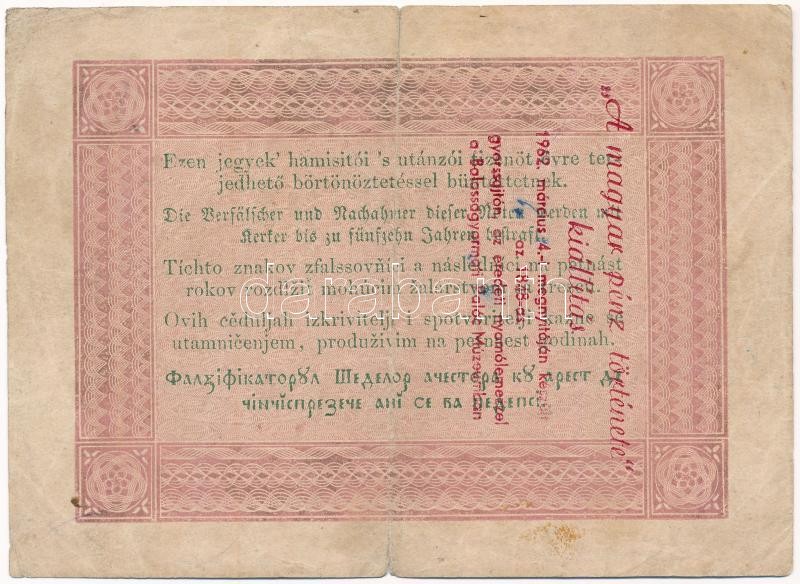 Ezen jegyek' hamisitói 's utánzói tizenöt évre ter
jedhető börtönöztetéssel büntettetnek.
Die Verfälscher und Nachahmer dieser Noten werden mit
Kerker bis zu fünfzehn Jahren bestraft.
Tíchto znakov zfalssovňíci a následňíci na patnást
rokov rozdlžiť mohúcim žalárstvom
Ovih cédúljah izkrivitelji i spotvoritelji kazne se
utamničenjem, produživim na petnaest godinah.
Фалзіфікаторꙋл Шеделор ачестора кꙋ арест де
чінчіспрезече ані се ва педепсі.
„A magyar pénz története"
kiállítás
1962. március 4.-i megnyitásán készült
az 1848-as
gyorssajtón, az eredeti nyomólemezzel
a Balassagyarmati Palóc Múzeumban
darabanth